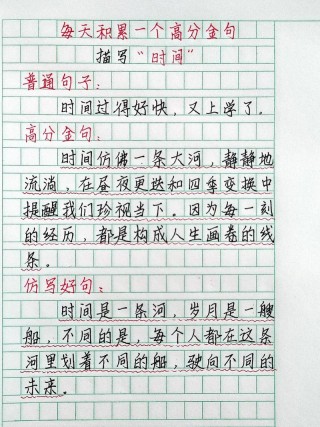 每天积累一个高分金句
描写“时间”
普通句子：
时间过得好快，又上学了。
高分金句：
时间仿佛一条大河，静静地
流淌，在昼夜更迭和四季变换中
提醒我们珍视当下。因为每一刻
的经历，都是构成人生画卷的线
条。
仿写好句：
时间是一条河，岁月是一艘
船，不同的是，每个人都在这条
河里划着不同的船，驶向不同的
未来。